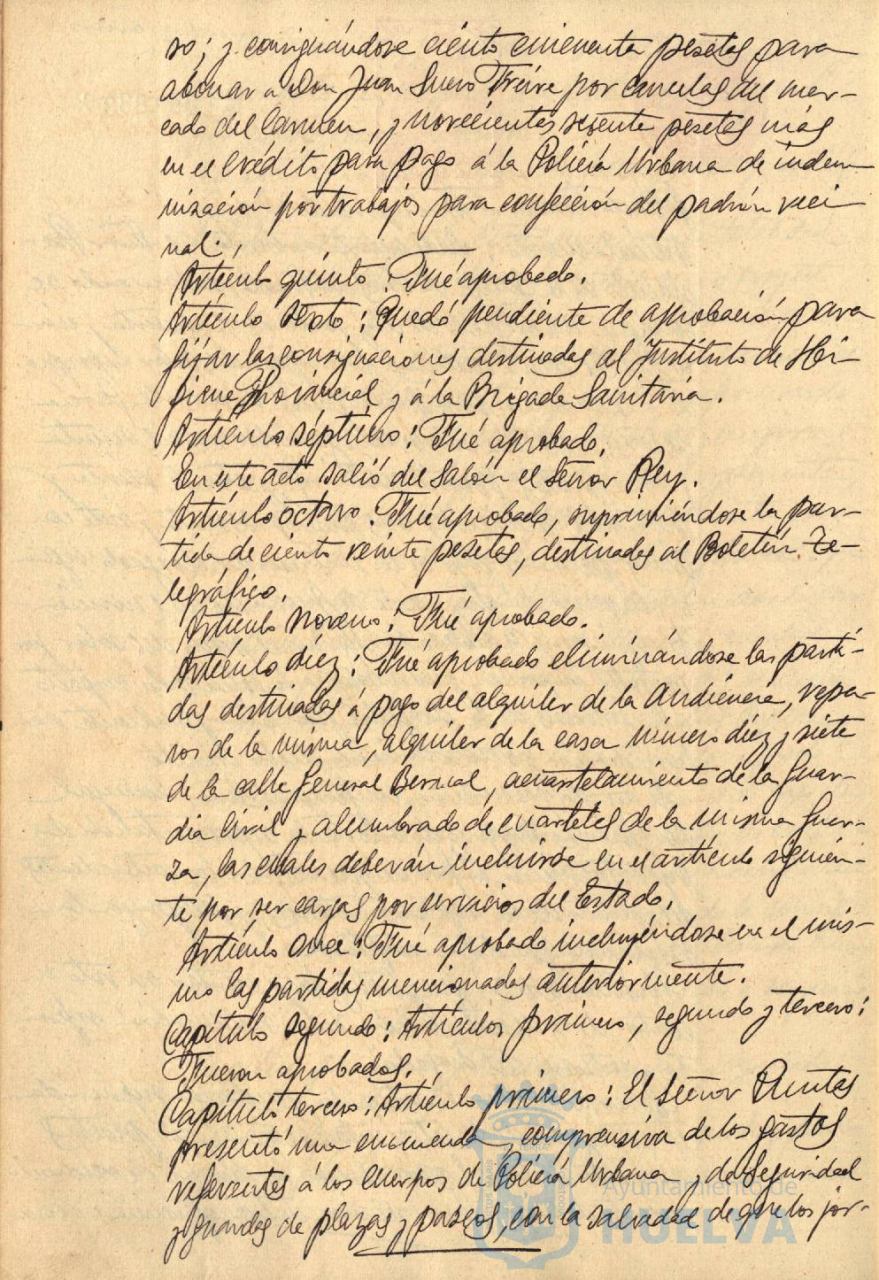 so; y consignándose ciento cincuenta pesetas para
abonar a Don Juan Suero Freire por cancelas del mer-
cado del Carmen, y novecientas sesenta pesetas más
en el crédito para pago á la Policía Urbana de indem-
nización por trabajos para confección del padrón veci-
nal.
Artículo quinto: Fué aprobado.
Artículo sexto: Quedó pendiente de aprobación para
fijar las consignaciones destinadas al Instituto de Hi-
giene Provincial y á la Brigada Sanitaria.
Artículo séptimo: Fué aprobado.
En este acto salió del Salón el Señor Rey.
Artículo octavo: Fué aprobado, suprimiéndose la par-
tida de ciento veinte pesetas, destinadas al Boletín Te-
legráfico.
Artículo noveno: Fué aprobado.
Artículo diez: Fué aprobado eliminándose las parti-
das destinadas á pago del alquiler de la Audiencia, repa-
ros de la misma, alquiler de la casa número diez y siete
de la calle General Bernal, acuartelamiento de la Guar-
dia Civil y alumbrado de cuarteles de la misma fuer-
za, las cuales deberán incluirse en el artículo siguien-
te por ser cargas por servicios del Estado.
Artículo once: Fué aprobado incluyéndose en el mis-
mo las partidas mencionadas anteriormente.
Capítulo segundo: Artículos primero, segundo y tercero:
Fueron aprobados.
Capítulo tercero: Artículo primero: El Señor
presentó una enmienda, comprensiva de los gastos
referentes á los Cuerpos de Policía Urbana y de Seguridad
y guardas de plazas y paseos, con la salvedad de que los jor-
Ayuntamiento de
HUELVA